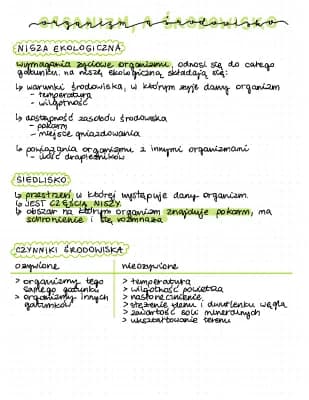 organizm a środowisko
NISZA EKOLOGICZNA
wymagania życiowe organizmu, odnosi się do całego
gatunku. na niszę ekologiczną składają się:
↳ warunki środowiska, w którym żyje dany organizm
- temperatura
- wilgotność
↳ dostępność zasobów środowiska
- pokarm
- miejsce gniazdowania
↳ powiązania organizmu z innymi organizmami
- ilość drapieżników
SIEDLISKO
↳ przestrzeń w której występuje dany organizm.
↳ JEST CZĘŚCIĄ NISZY.
↳ obszar na którym organizm znajduje pokarm, ma
schronienie i się rozmnaża
CZYNNIKI ŚRODOWISKA
ożywione nieożywione
> organizmy tego > temperatura
samego gatunku > wilgotność powietrza
> organizmy innych > nasłonecznienie
gatunków > stężenie tlenu i dwutlenku węgla
> zawartość soli mineralnych
> ukształtowanie terenu